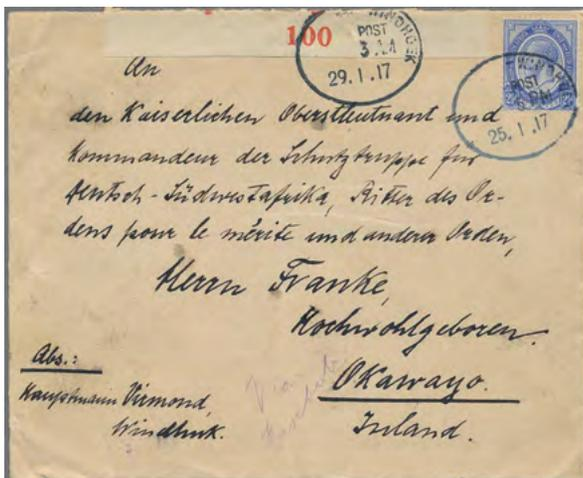 100
WINDHOEK
POST
29.1.17
WINDHO
POST
25.1.17
An
den Kaiserlichen Oberstleutnant und
Kommandeur der Schutztruppe für
Deutsch-Südwestafrika, Ritter des Or-
dens pour le mérite und anderer Orden,
Herrn Franke,
Hochwohlgeboren.
Okawayo.
Inland.
Abs.:
Hauptmann Virmond,
Windhuk.